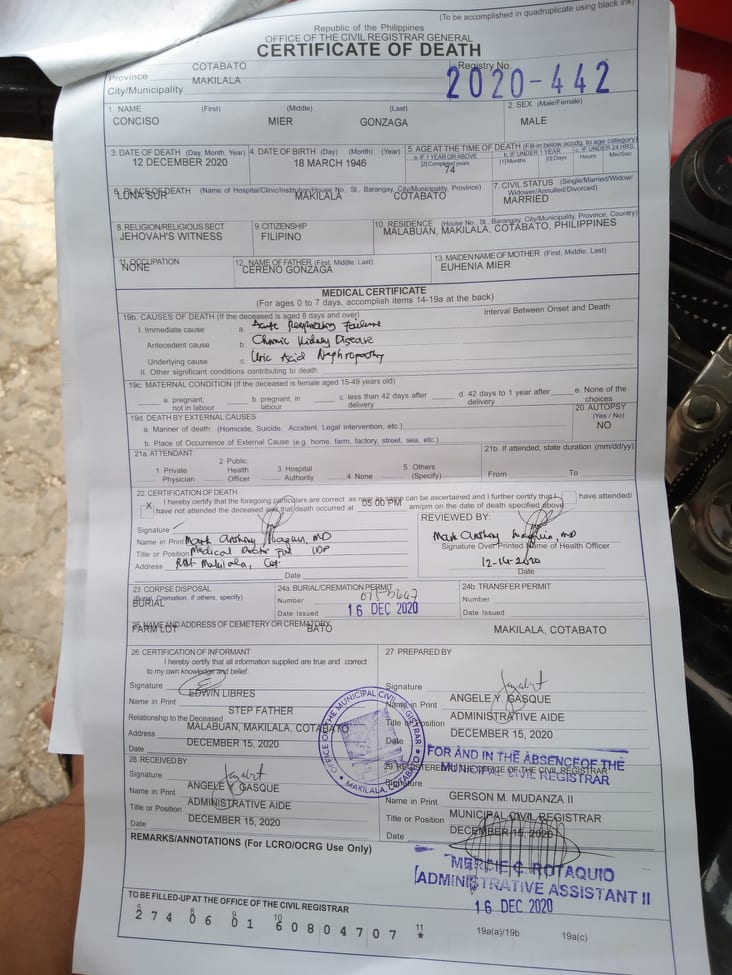 (To be accomplished in quadruplicate using black ink)
Republic of the Philippines
OFFICE OF THE CIVIL REGISTRAR GENERAL
CERTIFICATE OF DEATH
Province COTABATO
City/Municipality MAKILALA
Registry No.
2020-442
1. NAME (First) (Middle) (Last)
CONCISO MIER GONZAGA
2. SEX (Male/Female)
MALE
3. DATE OF DEATH (Day, Month, Year)
12 DECEMBER 2020
4. DATE OF BIRTH (Day) (Month) (Year)
18 MARCH 1946
5. AGE AT THE TIME OF DEATH (Fill-in below accdg. to age category)
a. IF 1 YEAR OR ABOVE
[2] Completed years
74
b. IF UNDER 1 YEAR
[1] Months [0] Days
c. IF UNDER 24 HRS.
Hours Min/Sec
6. PLACE OF DEATH (Name of Hospital/Clinic/Institution/House No., St., Barangay, City/Municipality, Province)
LUNA SUR MAKILALA COTABATO
7. CIVIL STATUS (Single/Married/Widow/
Widower/Annulled/Divorced)
MARRIED
8. RELIGION/RELIGIOUS SECT
JEHOVAH'S WITNESS
9. CITIZENSHIP
FILIPINO
10. RESIDENCE (House No., St., Barangay, City/Municipality, Province, Country)
MALABUAN, MAKILALA, COTABATO, PHILIPPINES
11. OCCUPATION
NONE
12. NAME OF FATHER (First, Middle, Last)
CERENO GONZAGA
13. MAIDEN NAME OF MOTHER (First, Middle, Last)
EUHENIA MIER
MEDICAL CERTIFICATE
(For ages 0 to 7 days, accomplish items 14-19a at the back)
19b. CAUSES OF DEATH (If the deceased is aged 8 days and over) Interval Between Onset and Death
I. Immediate cause a. Acute Respiratory Failure
Antecedent cause b. Chronic Kidney Disease
Underlying cause c. Uric Acid Nephropathy
II. Other significant conditions contributing to death
19c. MATERNAL CONDITION (If the deceased is female aged 15-49 years old)
a pregnant, not in labour
b. pregnant, in labour
c. less than 42 days after delivery
d. 42 days to 1 year after delivery
e. None of the choices
19d. DEATH BY EXTERNAL CAUSES
a. Manner of death (Homicide, Suicide, Accident, Legal intervention, etc.)
b. Place of Occurrence of External Cause (e.g. home, farm, factory, street, sea, etc.)
20. AUTOPSY
(Yes / No)
NO
21a. ATTENDANT
1 Private Physician
2 Public Health Officer
3 Hospital Authority
4 None
5 Others (Specify)
21b. If attended, state duration (mm/dd/yy)
From To
22. CERTIFICATION OF DEATH
I hereby certify that the foregoing particulars are correct as near as same can be ascertained and I further certify that I have attended/
X have not attended the deceased and that death occurred at 05:00 PM am/pm on the date of death specified above.
Signature
Name in Print Mark Anthony, MD
Title or Position Medical Doctor
Address RHU Makilala, Cot.
Date
REVIEWED BY:
Mark Anthony, MD
Signature Over Printed Name of Health Officer
12-14-2020
Date
23. CORPSE DISPOSAL
(Burial, Cremation, if others, specify)
BURIAL
24a. BURIAL/CREMATION PERMIT
Number
Date Issued 16 DEC 2020
24b. TRANSFER PERMIT
Number
Date Issued
25. NAME AND ADDRESS OF CEMETERY OR CREMATORY
FARM LOT BATO MAKILALA, COTABATO
26. CERTIFICATION OF INFORMANT
I hereby certify that all information supplied are true and correct
to my own knowledge and belief.
Signature
Name in Print EDWIN LIBRES
Relationship to the Deceased STEP FATHER
Address MALABUAN, MAKILALA, COTABATO
Date DECEMBER 15, 2020
27. PREPARED BY
Signature
Name in Print ANGELE Y. GASQUE
Title or Position ADMINISTRATIVE AIDE
Date DECEMBER 15, 2020
OFFICE OF THE MUNICIPAL CIVIL REGISTRAR
MAKILALA, COTABATO
28. RECEIVED BY
Signature
Name in Print ANGELE Y. GASQUE
Title or Position ADMINISTRATIVE AIDE
Date DECEMBER 15, 2020
FOR AND IN THE ABSENCE OF THE
MUNICIPAL CIVIL REGISTRAR
29. REGISTERED AT THE OFFICE OF THE CIVIL REGISTRAR
Signature
Name in Print GERSON M. MUDANZA II
Title or Position MUNICIPAL CIVIL REGISTRAR
Date DECEMBER 15, 2020
REMARKS/ANNOTATIONS (For LCRO/OCRG Use Only)
MERCIE C. ROTAQUIO
ADMINISTRATIVE ASSISTANT II
16 DEC 2020
TO BE FILLED-UP AT THE OFFICE OF THE CIVIL REGISTRAR
5 8 9 10 11
2 7 4 0 6 0 1 6 0 8 0 4 7 0 7 *
19a(a)/19b 19a(c)